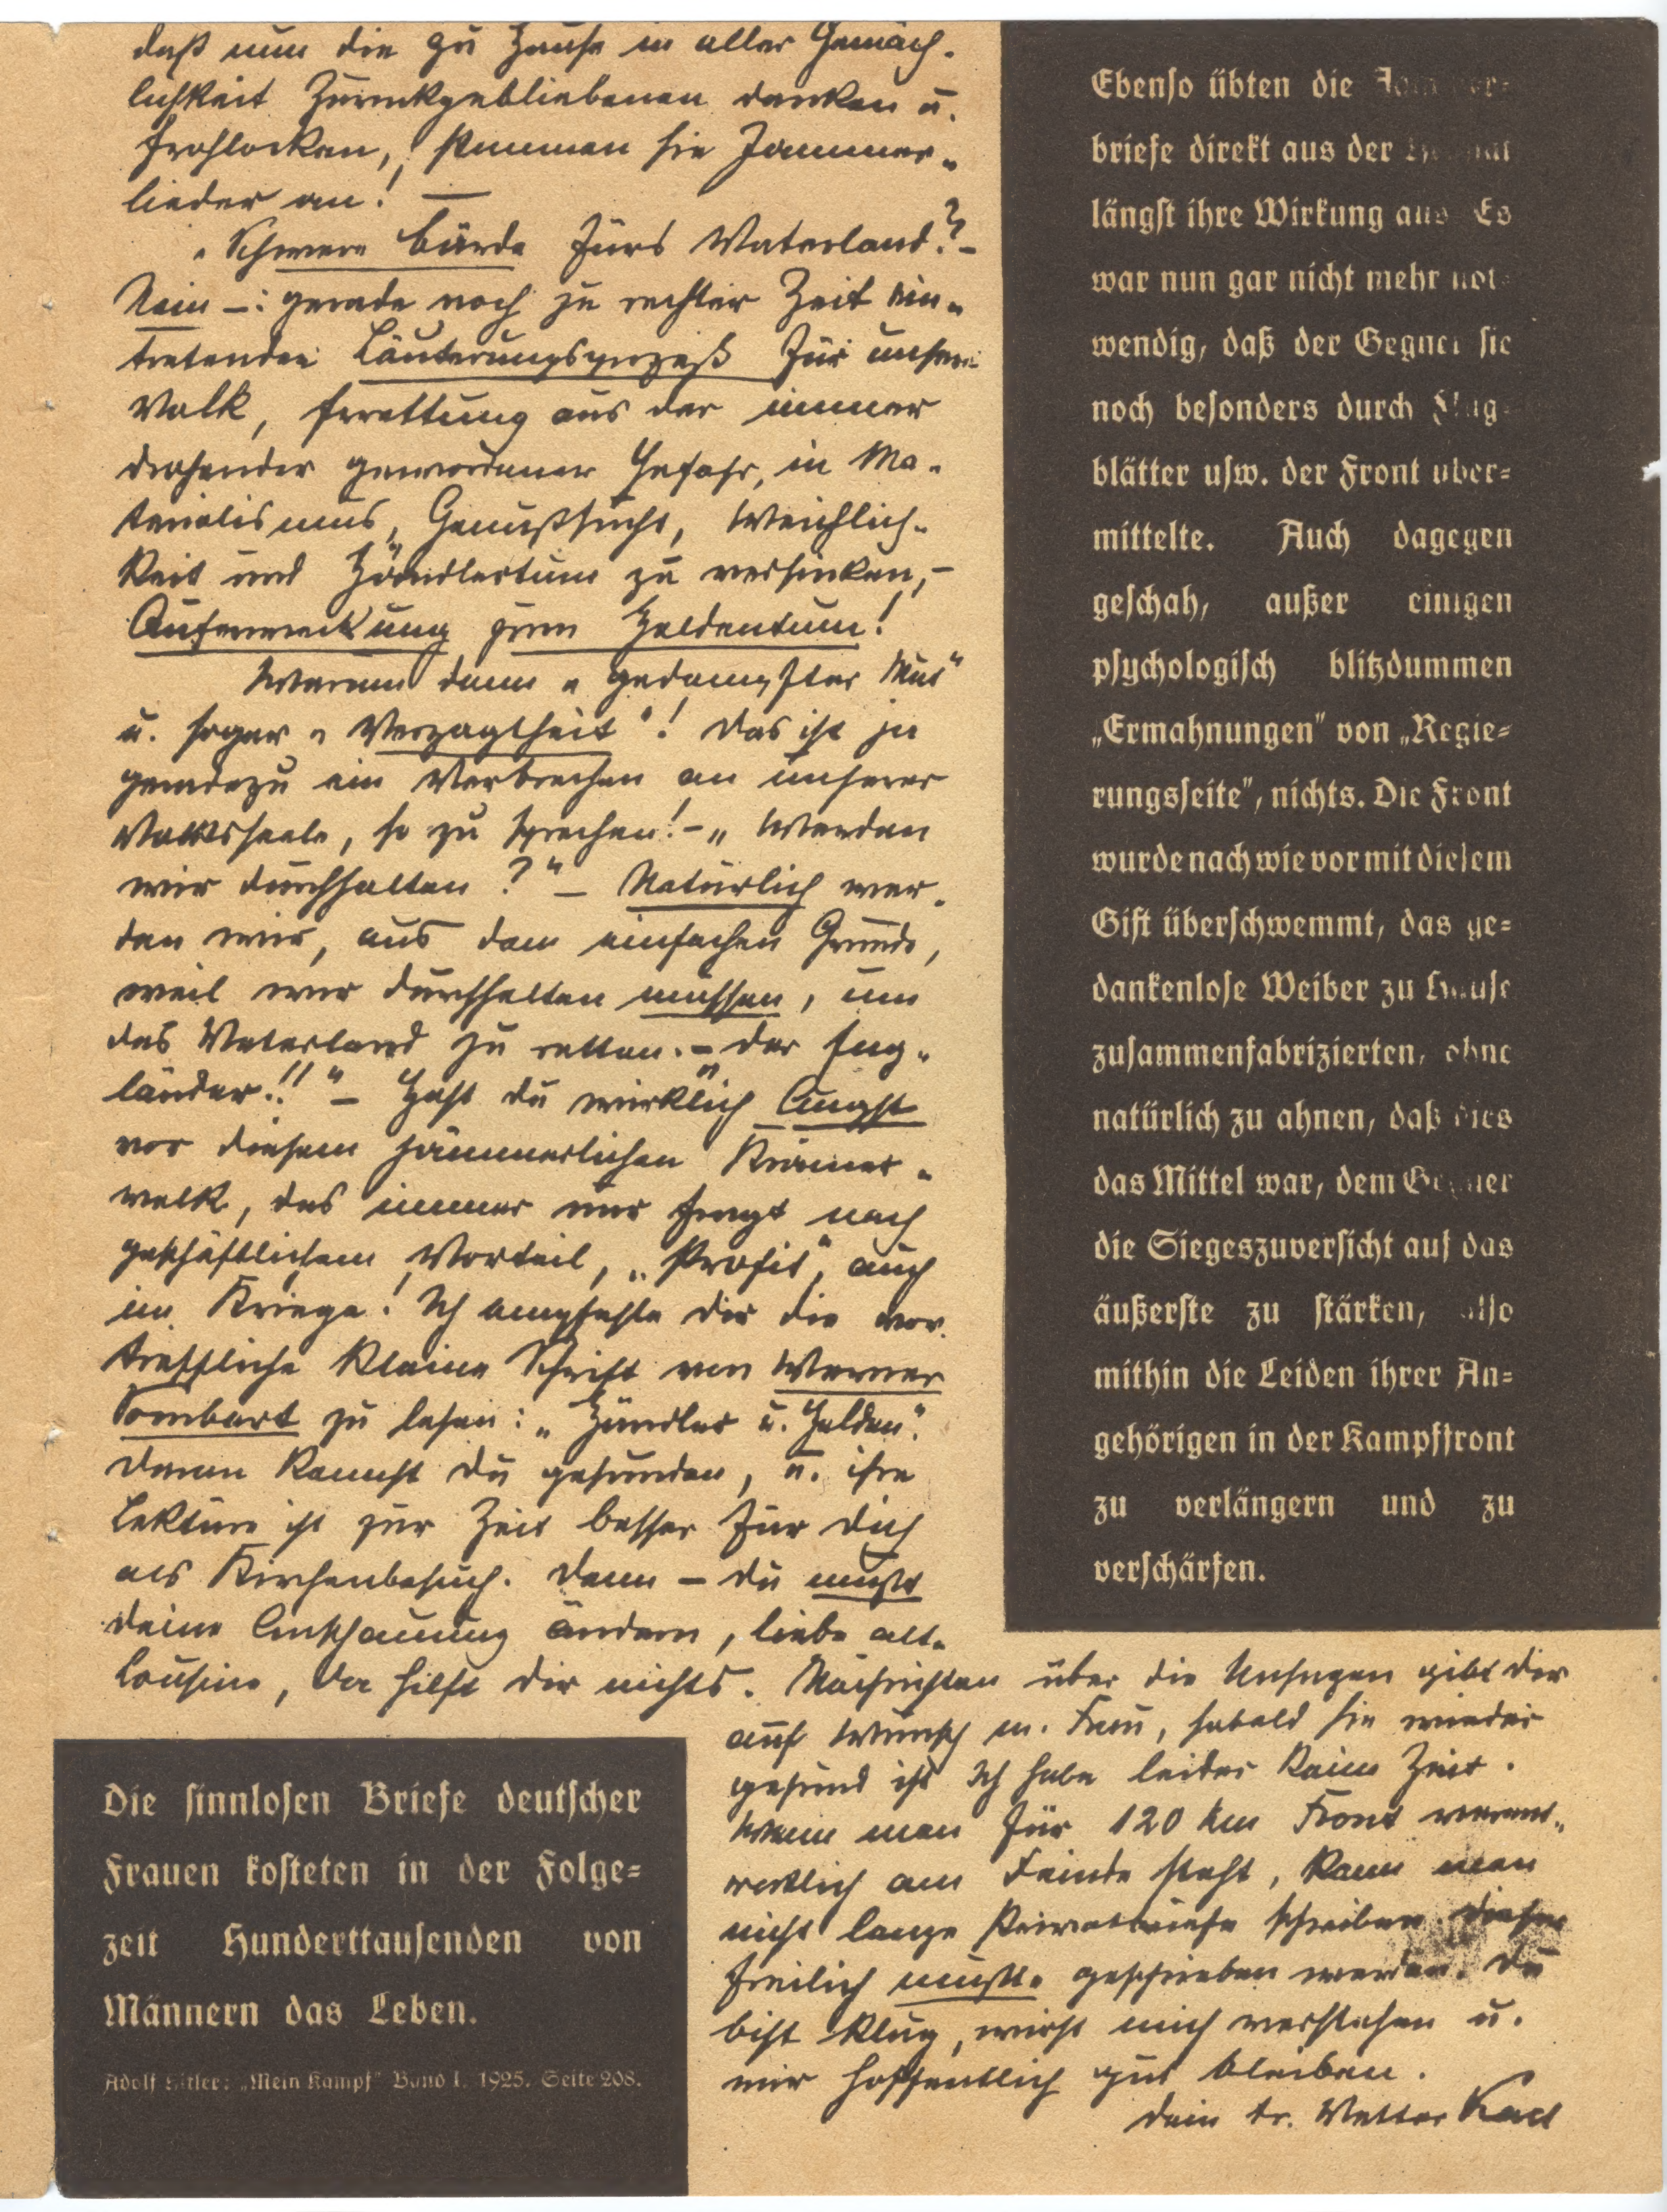 daß nun die zu Hause in aller Gemäch-
lichkeit Zurückgebliebenen danken u.
frohlocken, stimmen sie Jammer-
lieder an! —
„Schwere Bürde fürs Vaterland?" –
Nein –: gerade noch zu rechter Zeit ein-
tretender Läuterungsprozeß für unser
Volk, Errettung aus der immer
drohender gewordener Gefahr, in Ma-
terialismus, Genußsucht, Weichlich-
keit und Händlertum zu versinken, –
Auferweckung zum Heldentum!
Warum denn „gedämpfter Mut"
u. sogar „Verzagtheit"! Das ist ja
geradezu ein Verbrechen an unserer
Volksseele, so zu sprechen! – „Werden
wir durchhalten?" – Natürlich wer-
den wir, aus dem einfachen Grunde,
weil wir durchhalten müssen, um
das Vaterland zu retten. – „Der Eng-
länder!!" – Hast du wirklich Angst
vor diesem jämmerlichen Krämer-
volk, das immer nur fragt nach
geschäftlichem Vorteil, „Profit", auch
im Kriege! Ich empfehle dir die vor-
treffliche kleine Schrift von Werner
Sombart zu lesen: „Händler u. Helden".
Daran kannst du gesunden, u. ihre
Lektüre ist zur Zeit besser für dich
als Kirchenbesuch. Denn – du mußt
deine Anschauung ändern, liebe alt-
Cousine, da hilft dir nichts. Nachrichten über die Unsrigen gibt dir
auf Wunsch m. Frau, sobald sie wieder
gesund ist. Ich habe leider keine Zeit.
Wenn man für 120 km Front verant-
wortlich am Feinde steht, kann man
nicht lange Privatbriefe schreiben. Dieser
freilich mußte geschrieben werden. Du
bist klug, wirst mich verstehen u.
mir hoffentlich gut bleiben.
Dein tr. Vetter Karl
Ebenso übten die Jammer-
briefe direkt aus der Heimat
längst ihre Wirkung aus. Es
war nun gar nicht mehr not-
wendig, daß der Gegner sie
noch besonders durch Flug-
blätter usw. der Front über-
mittelte. Auch dagegen
geschah, außer einigen
psychologisch blitzdummen
„Ermahnungen" von „Regie-
rungsseite", nichts. Die Front
wurde nach wie vor mit diesem
Gift überschwemmt, das ge-
dankenlose Weiber zu Hause
zusammenfabrizierten, ohne
natürlich zu ahnen, daß dies
das Mittel war, dem Gegner
die Siegeszuversicht auf das
äußerste zu stärken, also
mithin die Leiden ihrer An-
gehörigen in der Kampffront
zu verlängern und zu
verschärfen.
Die sinnlosen Briefe deutscher
Frauen kosteten in der Folge-
zeit Hunderttausenden von
Männern das Leben.
Adolf Hitler: „Mein Kampf" Band I. 1925. Seite 208.